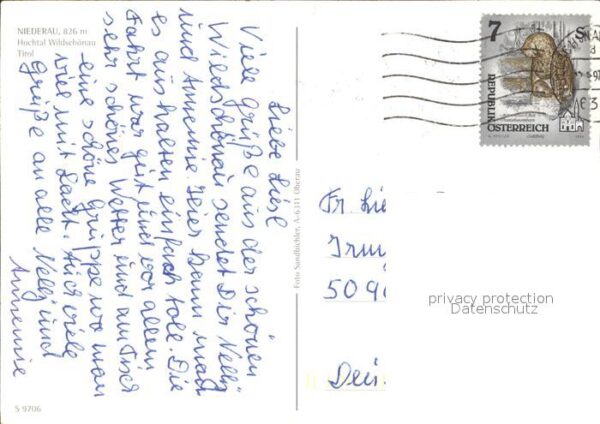 NIEDERAU, 826 m
Hochtal Wildschönau
Tirol
Liebe Liesl
Viele Grüße aus der schönen
Wildschönau sendet Dir Nelly
und Annemie hier kann man
es aushalten einfach toll. Die
Fahrt war gut und vor allem
sehr schönes Wetter und am Tisch
eine schöne Gruppe wo man
viel mit Lacht. Auch viele
Grüße an alle Nelly und
Annemie
S 9706
Foto Sandbichler, A-6311 Oberau
7 S
REPUBLIK
ÖSTERREICH
Fr. Lie
Irm
509
Dei
privacy protection
Datenschutz